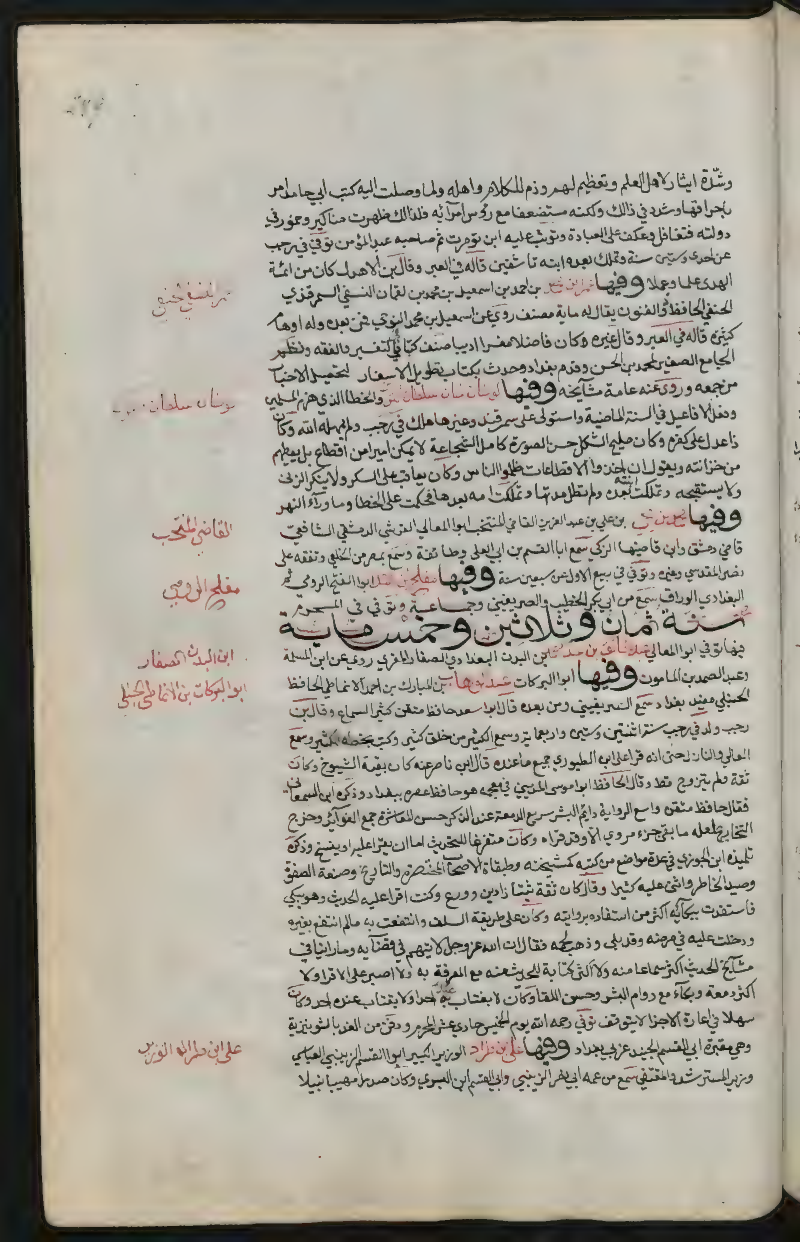 وشدة ايثار لاهل العلم وتعظيم لهم وذم للكلام واهله ولما وصلت اليه كتب ابي حامد امر
باحراقها وشدد في ذالك ولكنه مستضعفا مع رؤس امرآيه فلذالك ظهرت مناكير وخمور في
دولته فتغافل وعكف على العبادة وتوثب عليه ابن تومرت ثم صاحبه عبد المؤمن توفي في رجب
عن احدى وستين سنة وتملك بعده ابنه تاشفين قاله في العبر وقال بن الاهدل كان من ائمة
الهدى علما وعملا وفيها عمر بن محمد بن احمد بن اسمعيل بن محمد بن لقمان النسفي السمرقندي
الحنفي الحافظ ذو الفنون يقال له ماية مصنف روى عن اسمعيل بن محمد النوحي فمن بعده وله اوهام
كثيرة قاله في العبر وقال غيره وكان فاضلا مفسرا اديبا صنف كتبا في التفسير والفقه ونظم
الجامع الصغير لمحمد بن الحسن وقدم بغداد وحدث بكتاب تطويل الاسفار لتحصيل الاخبار
من جمعه وروى عنه عامة مشآيخه وفيها كوخان خان سلطان الترك والخطا الذي هزم المسلمين
وفعل الافاعيل في السنة الماضية واستولى على سمرقند وغيرها هلك في رجب ولم يمهله الله وكان
ذا عدل على كفره وكان مليح الشكل حسن الصورة كامل الشجاعة لا يمكن اميرا من اقطاع بل يعطيهم
من خزانته ويقول ان اخذوا الاقطاعات ظلموا الناس وكان يعاقب على السكر ولا ينكر الزنى
ولا يستقبحه وتملكت بعده ابنته ولم تطل مدتها وتملكت امه بعدها فحكمت على الخطا وما ورآء النهر
وفيها محمد بن يحيى بن علي بن عبد العزيز القاضي المنتخب ابو المعالي القرشي الدمشقي الشافعي
قاضي دمشق وابن قاضيها الزكي سمع ابا القسم بن ابي العلى وطائفة وسمع بمصر من الخلعي وتفقه على
نصر المقدسي وغيره وتوفي في ربيع الاول عن سبعين سنة وفيها مفلح بن احمد ابو الفتح الرومي ثم
البغدادي الوراق سمع من ابي بكر الخطيب والصريفيني وجماعة وتوفي في المحرم
سنة ثمان وثلاثين وخمسماية
فيها توفي ابو المعالي بن البدن البغدادي الصفار المقري روى عن ابن المسلمة
وعبد الصمد بن المامون وفيها ابو البركات عبد الوهاب بن المبارك بن احمد الانماطي الحافظ
الحنبلي مفيد بغداد سمع الصريفيني ومن بعده قال ابو سعد حافظ متقن كثير السماع وقال بن
رجب ولد في رجب سنة اثنتين وستين واربعماية وسمع الكثير من خلق كثير وكتب بخطه الكثير وسمع
العالي والنازل حتى انه قرا على ابن الطيوري جميع ما عنده قال ابن ناصر عنه كان بقية الشيوخ وكان
ثقة ولم يتزوج قط وقال الحافظ ابو موسى المديني في معجمه هو حافظ عصره ببغداد وذكره ابن السمعاني
فقال حافظ متقن واسع الرواية دائم البشر سريع الدمعة عند الذكر حسن المعاشرة جمع الفوآيد وخرج
التخاريج لعله ما بقي جزء مروي الا وقد قراه وكان متفرغا للتحديث اما ان يقرا عليه او ينسخ وذكره
تلميذه ابن الجوزي في عدة مواضع من كتبه كمشيخته وطبقات الاصحاب المختصرة والتاريخ وصفة الصفوة
وصيد الخاطر واثنى عليه كثيرا وقال كان ثقة ثبتا ذا دين وورع وكنت اقرا عليه الحديث وهو يبكي
فاستفدت ببكآيه اكثر من استفاده بروايته وكان على طريقة السلف وانتفعت به ما لم انتفع بغيره
ودخلت عليه في مرضه وقد بلي وذهب لحمه فقال ان الله عز وجل لا يتهم في قضآيه وما راينا في
مشآيخ الحديث اكثر سماعا منه ولا اكثر كتابة للحديث منه مع المعرفة به ولا اصبر على الاقرا ولا
اكثر دمعة وبكآء مع دوام البشر وحسن اللقا وكان لا يغتاب احدا ولا يغتاب عنده احد وكان
سهلا في اعارة الاجزا لا يتوقف توفي رحمه الله يوم الخميس حادي عشر المحرم ودفن من الغد بالشونيزية
وهي مقبرة ابي القسم الجنيد غربي بغداد وفيها علي بن طراد الوزير الكبير ابوا القسم الزينبي العباسي
وزير المسترشد والمقتفي سمع من عمه ابي نصر الزينبي وابي القسم ابن البسري وكان صدرا مهيبا نبيلا
عمر النسفي الحنفي
كوخان سلطان
القاضي المنتخب
مفلح الرومي
ابن البدن الصفار
ابو البركات بن الانماطي الحنبلي
علي ابن طراد الوزير